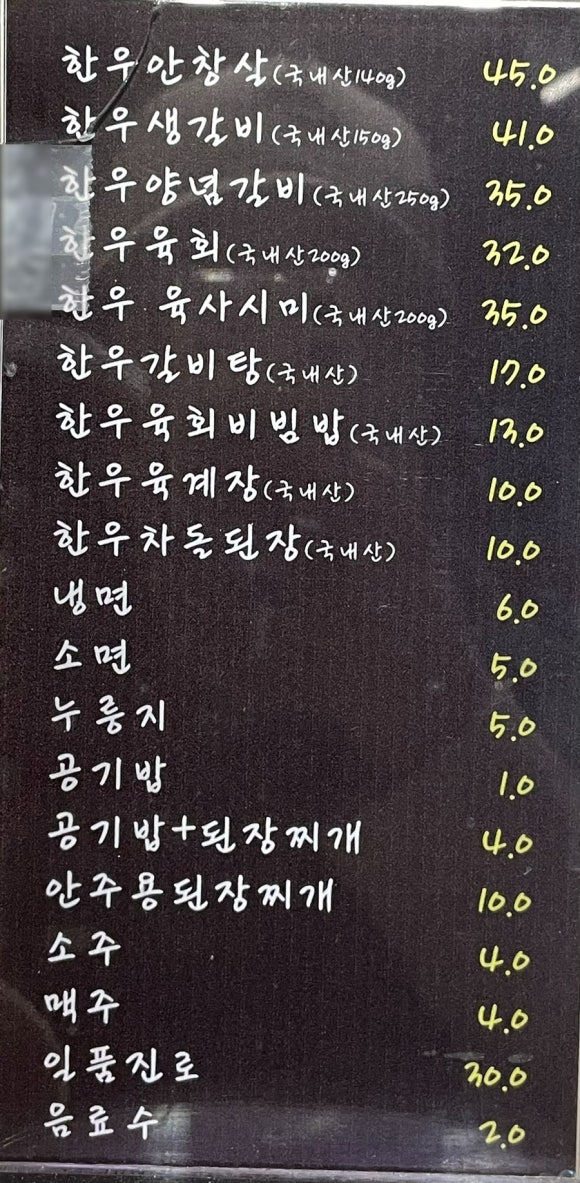 한우안창살(국내산140g) 45.0
한우생갈비(국내산150g) 41.0
한우양념갈비(국내산250g) 35.0
한우육회(국내산200g) 32.0
한우 육사시미(국내산200g) 35.0
한우갈비탕(국내산) 17.0
한우육회비빔밥(국내산) 13.0
한우육계장(국내산) 10.0
한우차돌된장(국내산) 10.0
냉면 6.0
소면 5.0
누룽지 5.0
공기밥 1.0
공기밥+된장찌개 4.0
안주용된장찌개 10.0
소주 4.0
맥주 4.0
일품진로 30.0
음료수 2.0